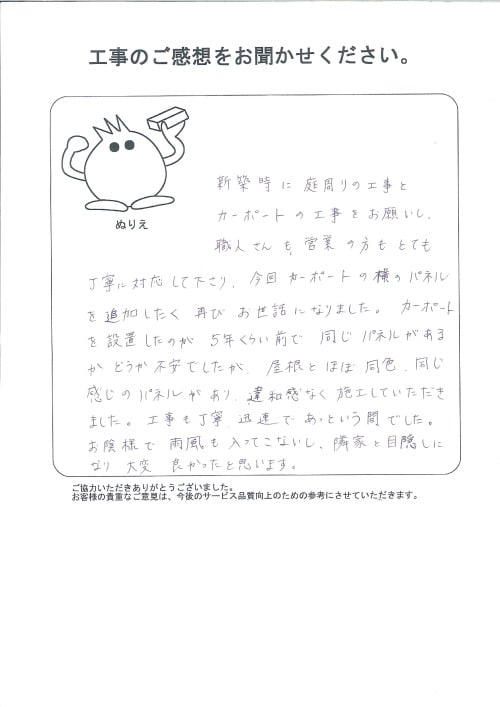 工事のご感想をお聞かせください。
ぬりえ
新築時に庭周りの工事と
カーポートの工事をお願いし、
職人さんも、営業の方もとても
丁寧に対応して下さり、今回カーポートの横のパネル
を追加したく再びお世話になりました。カーポート
を設置したのが5年くらい前で同じパネルがある
かどうか不安でしたが、屋根とほぼ同色、同じ
感じのパネルがあり、違和感なく施工していただき
ました。工事も丁寧、迅速であっという間でした。
お陰様で雨風も入ってこないし、隣家と目隠しに
なり大変良かったと思います。
ご協力いただきありがとうございました。
お客様の貴重なご意見は、今後のサービス品質向上のための参考にさせていただきます。